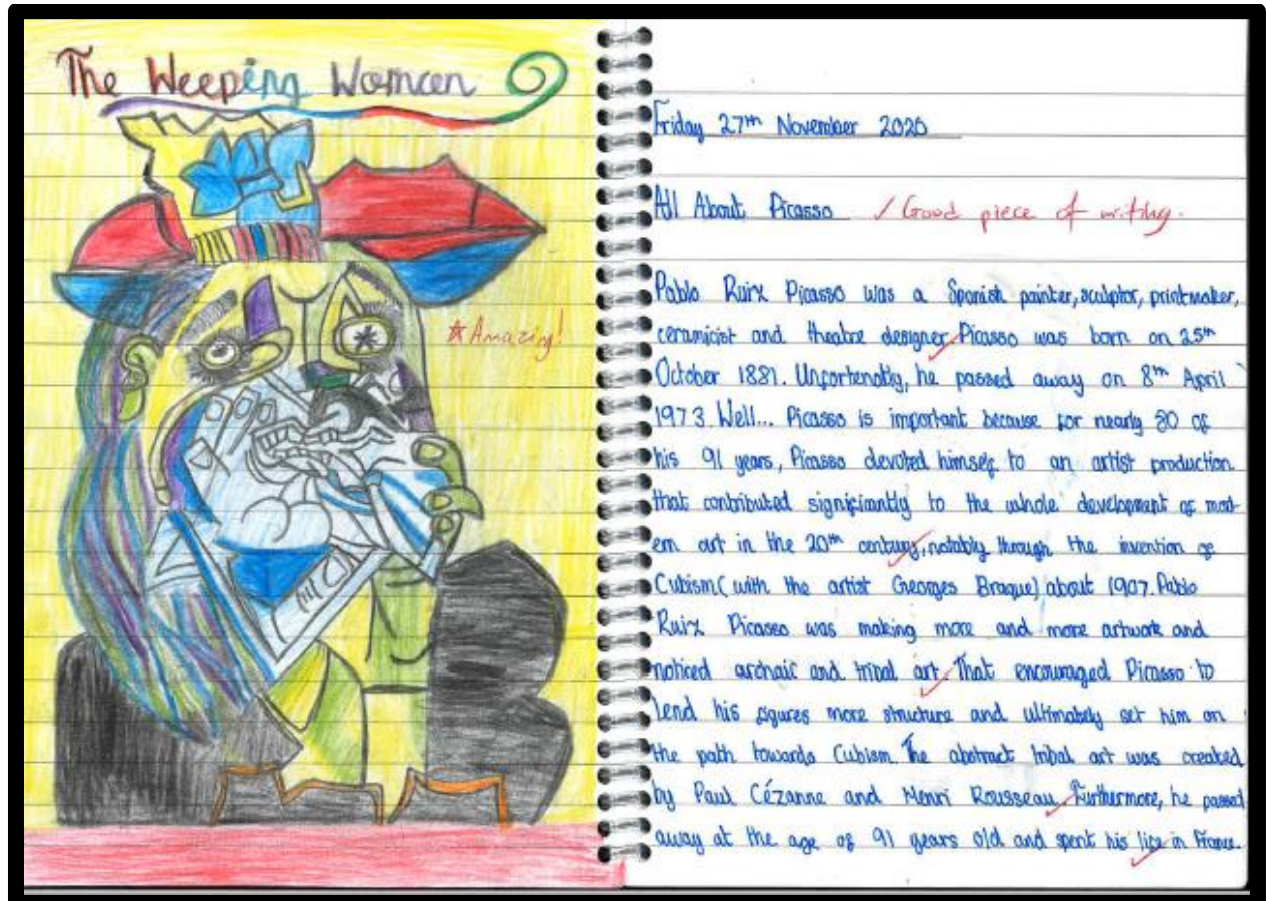 The Weeping Woman
★Amazing!
Friday 27th November 2020
All About Picasso ✓ Good piece of writing.
Pablo Ruiz Picasso was a Spanish painter, sculptor, printmaker,
ceramicist and theatre designer. Picasso was born on 25th
October 1881. Unfortenatly, he passed away on 8th April
1973. Well... Picasso is important because for nearly 80 of
his 91 years, Picasso devoted himself to an artist production
that contributed significantly to the whole development of mod-
ern art in the 20th century, notably through the invention of
Cubism( with the artist Georges Braque) about 1907. Pablo
Ruiz Picasso was making more and more artwork and
noticed archaic and tribal art. That encouraged Picasso to
lend his figures more structure and ultimately set him on
the path towards Cubism. The abstract tribal art was created
by Paul Cézanne and Henri Rousseau. Furthermore, he passed
away at the age of 91 years old and spent his life in France.